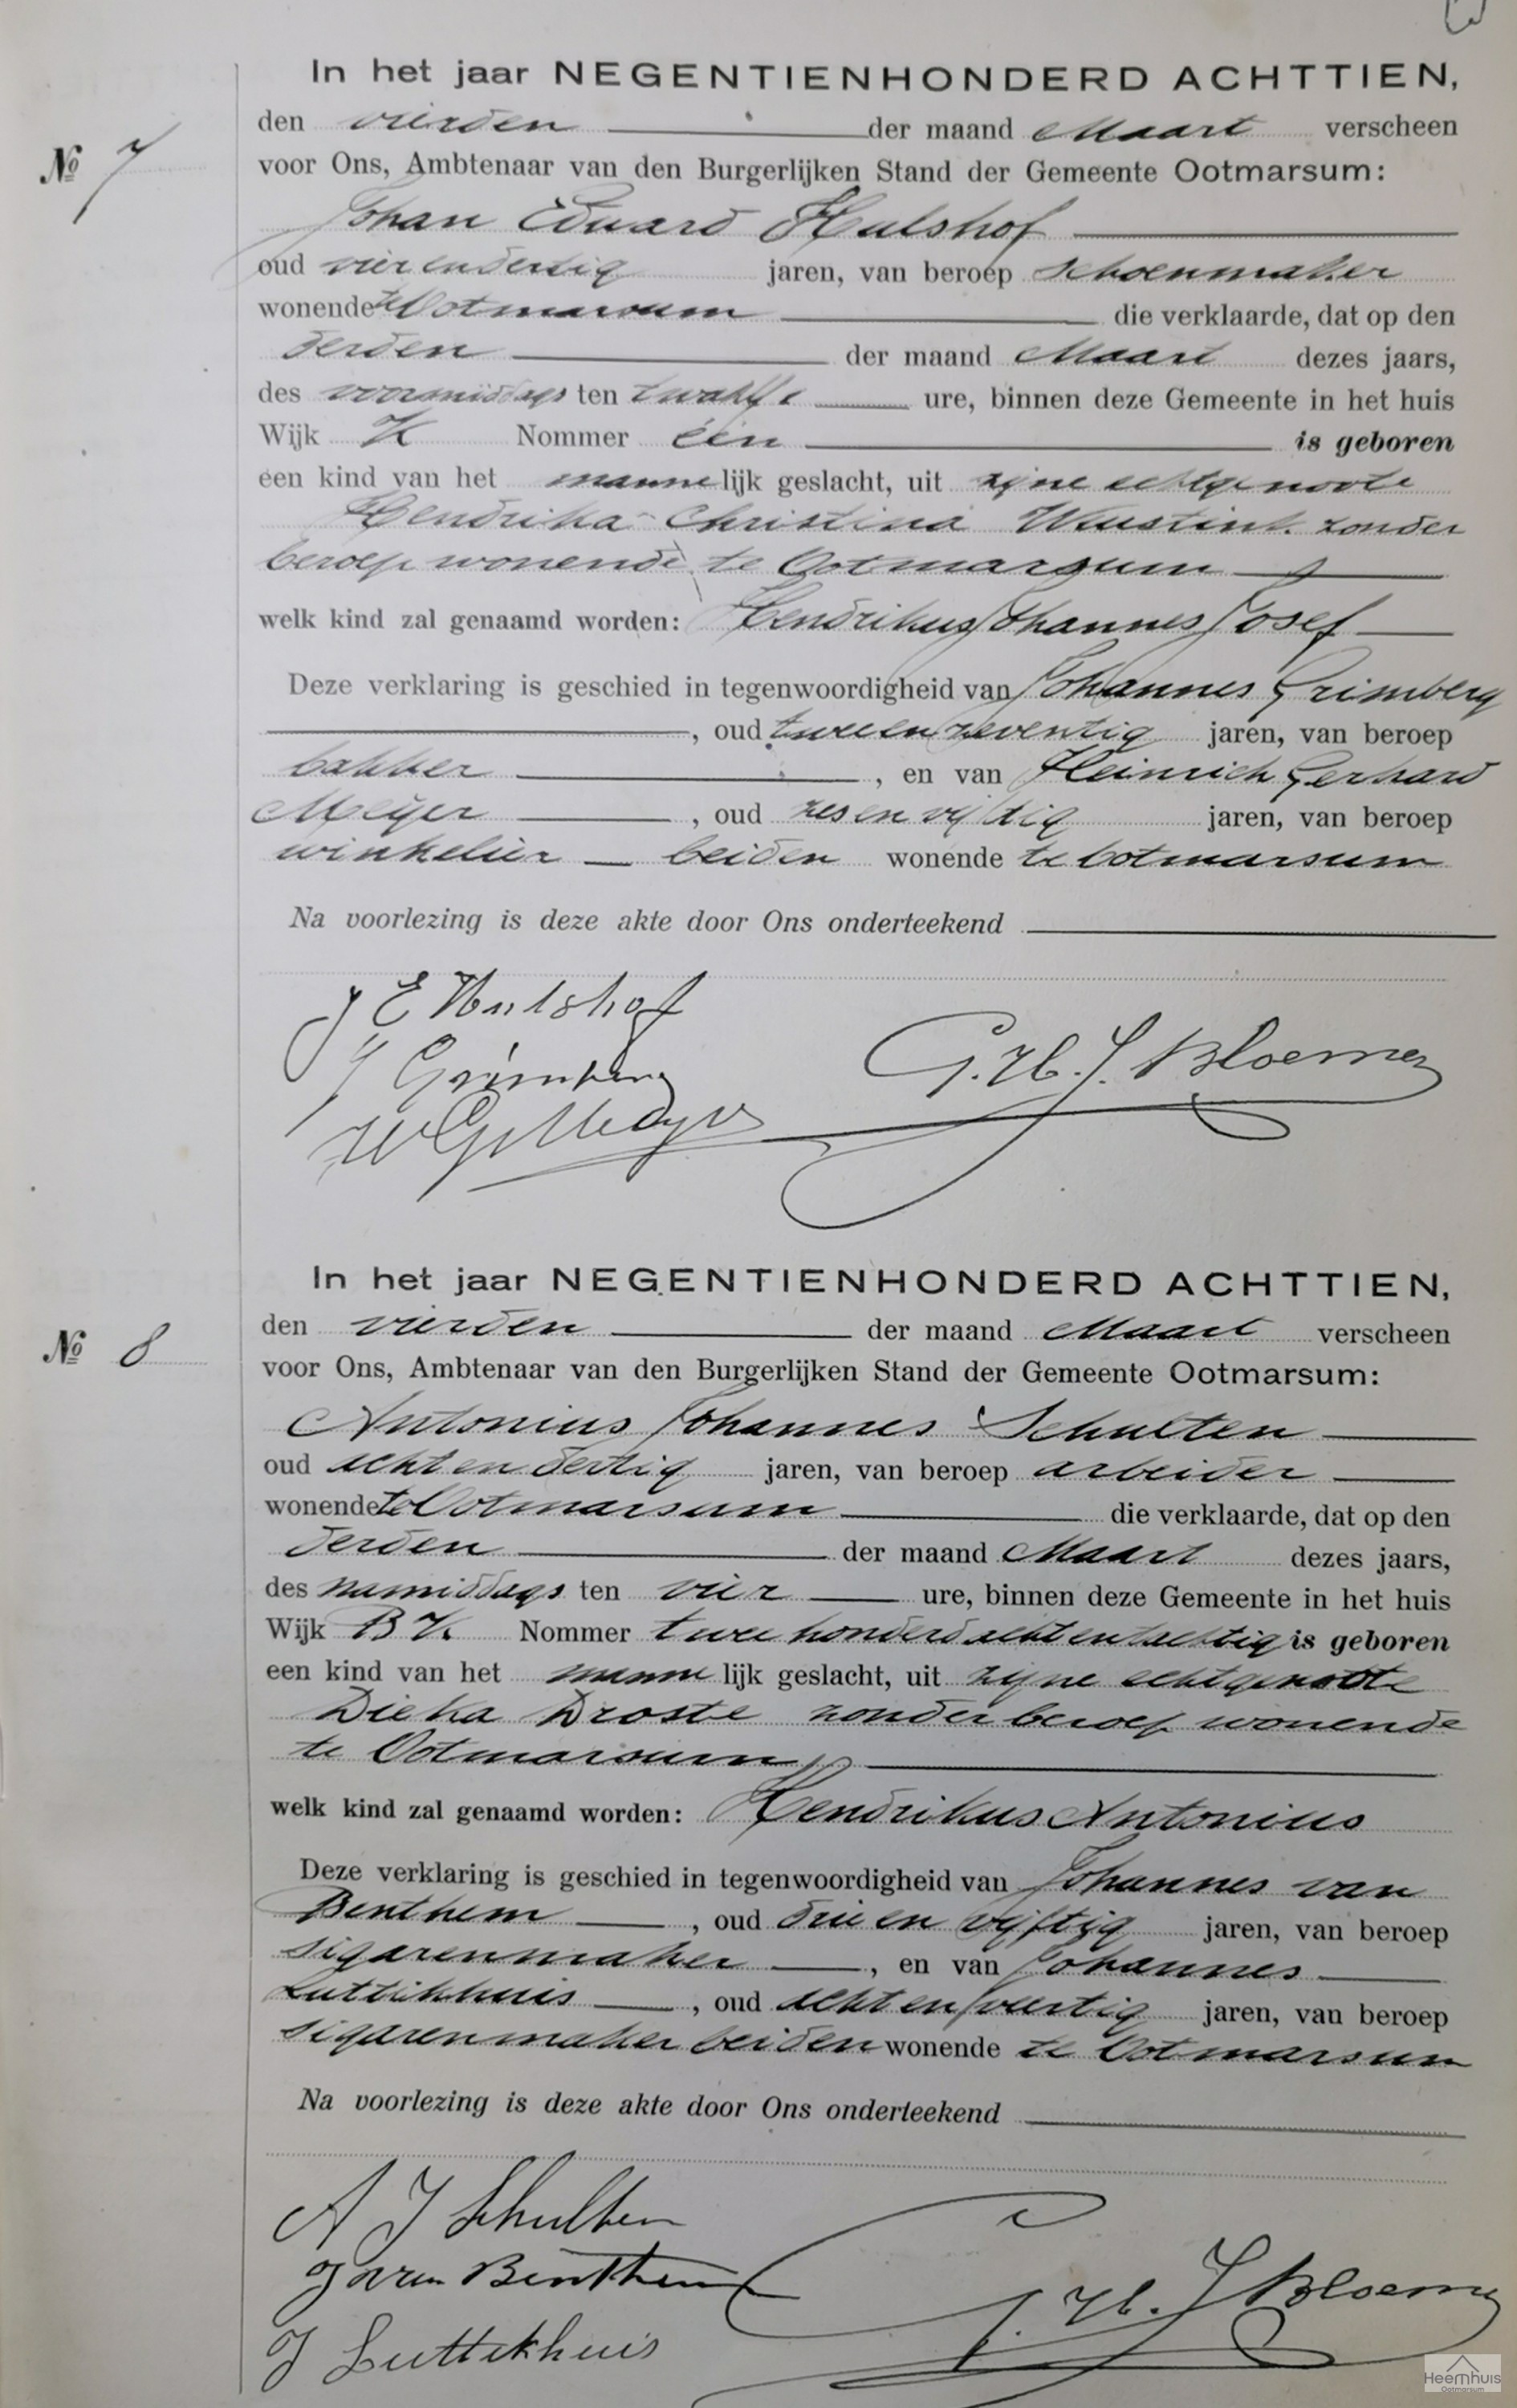 In het jaar NEGENTIENHONDERD ACHTTIEN,
den vierden der maand Maart verscheen
No 7
voor Ons, Ambtenaar van den Burgerlijken Stand der Gemeente Ootmarsum:
Johan Eduard Hulshof
oud vierendertig jaren, van beroep schoenmaker
wonende te Ootmarsum die verklaarde, dat op den
derden der maand Maart dezes jaars,
des voormiddags ten twaalf ure, binnen deze Gemeente in het huis
Wijk K Nommer één is geboren
een kind van het mannelijk geslacht, uit zijne echtgenoote
Hendrika Christina Wuustink zonder
beroep wonende te Ootmarsum
welk kind zal genaamd worden: Hendrikus Johannes Josef
Deze verklaring is geschied in tegenwoordigheid van Johannes Grimberg
, oud tweeenzeventig jaren, van beroep
bakker , en van Heinrich Gerhard
Meijer , oud zesenvijftig jaren, van beroep
winkelier beiden wonende te Ootmarsum
Na voorlezing is deze akte door Ons onderteekend
J E Hulshof
J Grimberg
G. H. J. Bloemen
H G Meijer
In het jaar NEGENTIENHONDERD ACHTTIEN,
den vierden der maand Maart verscheen
No 8
voor Ons, Ambtenaar van den Burgerlijken Stand der Gemeente Ootmarsum:
Antonius Johannes Schulten
oud achtendertig jaren, van beroep arbeider
wonende te Ootmarsum die verklaarde, dat op den
derden der maand Maart dezes jaars,
des namiddags ten vier ure, binnen deze Gemeente in het huis
Wijk B K. Nommer tweehonderdachtentachtig is geboren
een kind van het mannelijk geslacht, uit zijne echtgenoote
Dieka Droste zonder beroep wonende
te Ootmarsum
welk kind zal genaamd worden: Hendrikus Antonius
Deze verklaring is geschied in tegenwoordigheid van Johannes van
Benthem , oud drieenvijftig jaren, van beroep
sigarenmaker , en van Johannes
Luttikhuis , oud achtenveertig jaren, van beroep
sigarenmaker beiden wonende te Ootmarsum
Na voorlezing is deze akte door Ons onderteekend
A J Schulten
J van Benthem
G. H. J Bloemen
J Luttikhuis
Heemhuis
Ootmarsum